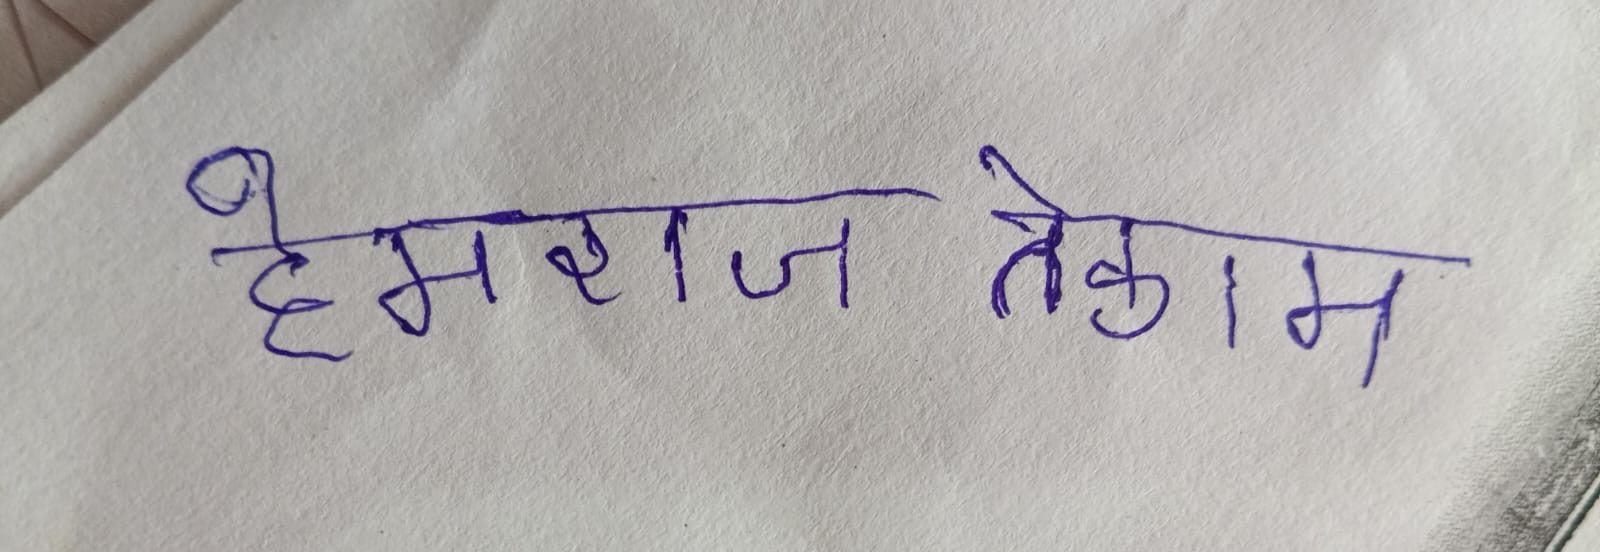 हेमराज तेकाम